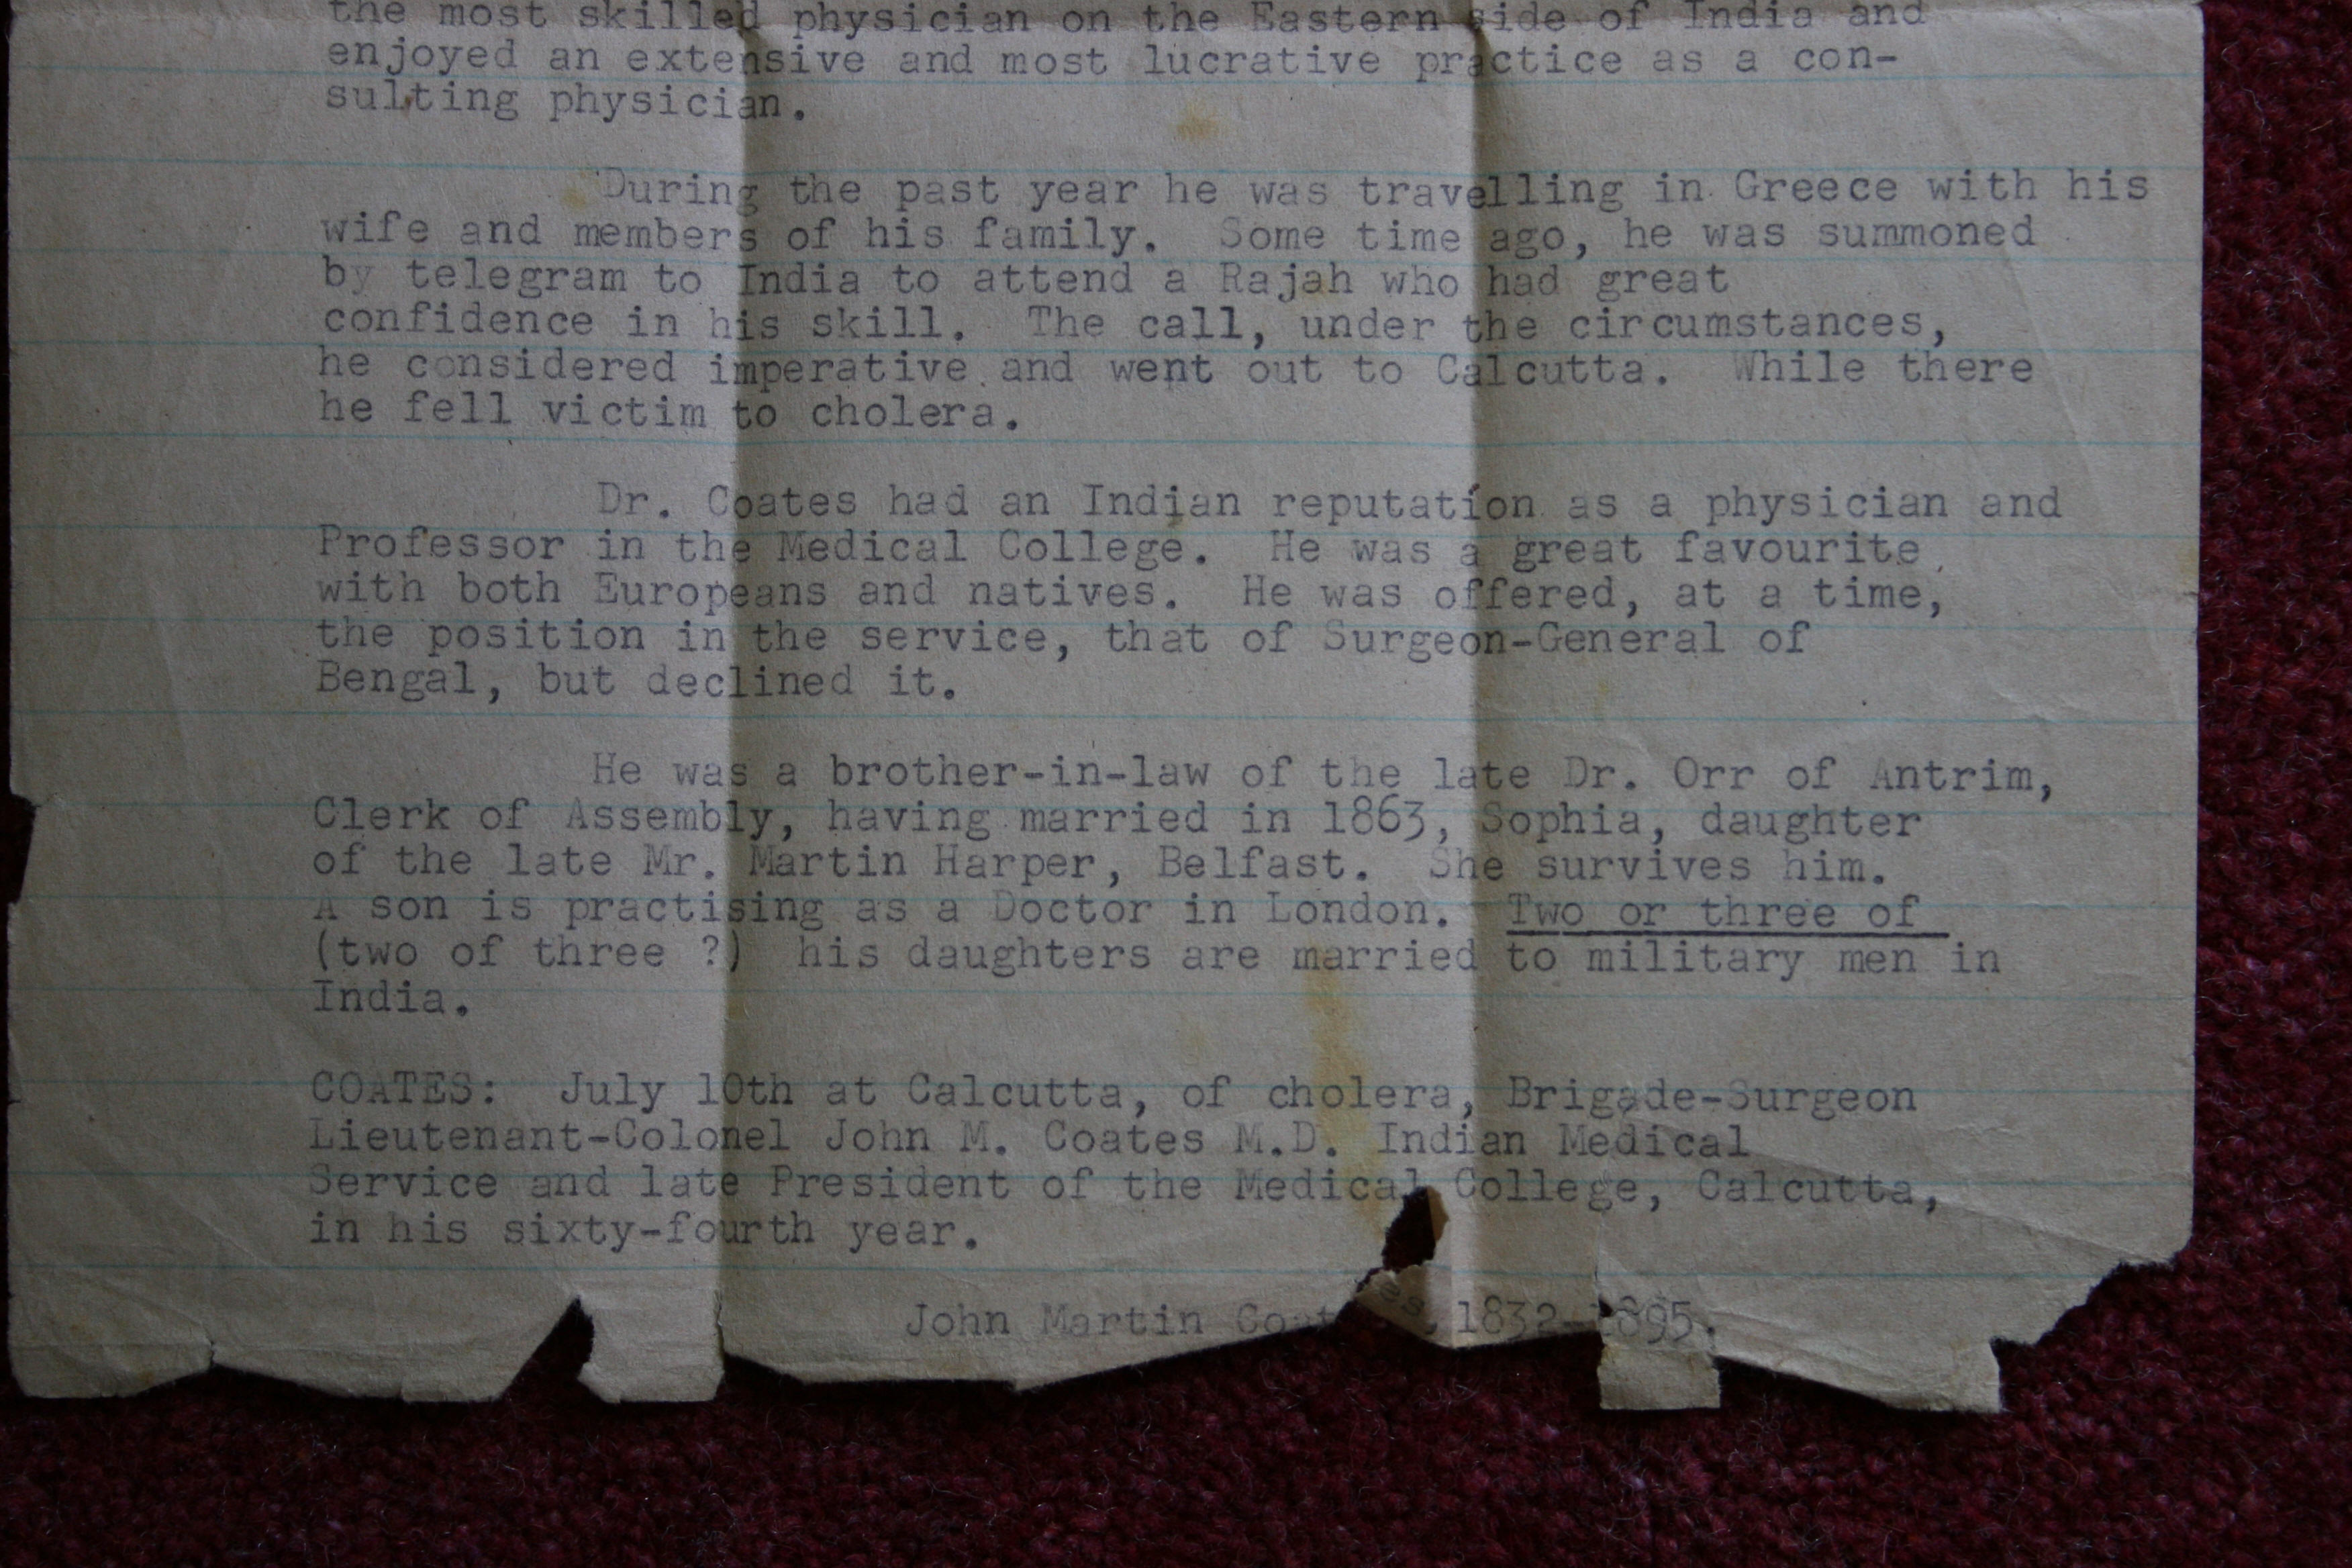 the most skilled physician on the Eastern side of India and
enjoyed an extensive and most lucrative practice as a con-
sulting physician.
During the past year he was travelling in Greece with his
wife and members of his family. Some time ago, he was summoned
by telegram to India to attend a Rajah who had great
confidence in his skill. The call, under the circumstances,
he considered imperative and went out to Calcutta. While there
he fell victim to cholera.
Dr. Coates had an Indian reputation as a physician and
Professor in the Medical College. He was a great favourite
with both Europeans and natives. He was offered, at a time,
the position in the service, that of Surgeon-General of
Bengal, but declined it.
He was a brother-in-law of the late Dr. Orr of Antrim,
Clerk of Assembly, having married in 1863, Sophia, daughter
of the late Mr. Martin Harper, Belfast. She survives him.
A son is practising as a Doctor in London. Two or three of
(two of three ?) his daughters are married to military men in
India.
COATES: July 10th at Calcutta, of cholera, Brigade-Surgeon
Lieutenant-Colonel John M. Coates M.D. Indian Medical
Service and late President of the Medical College, Calcutta,
in his sixty-fourth year.
John Martin Coates, 1832-1895.